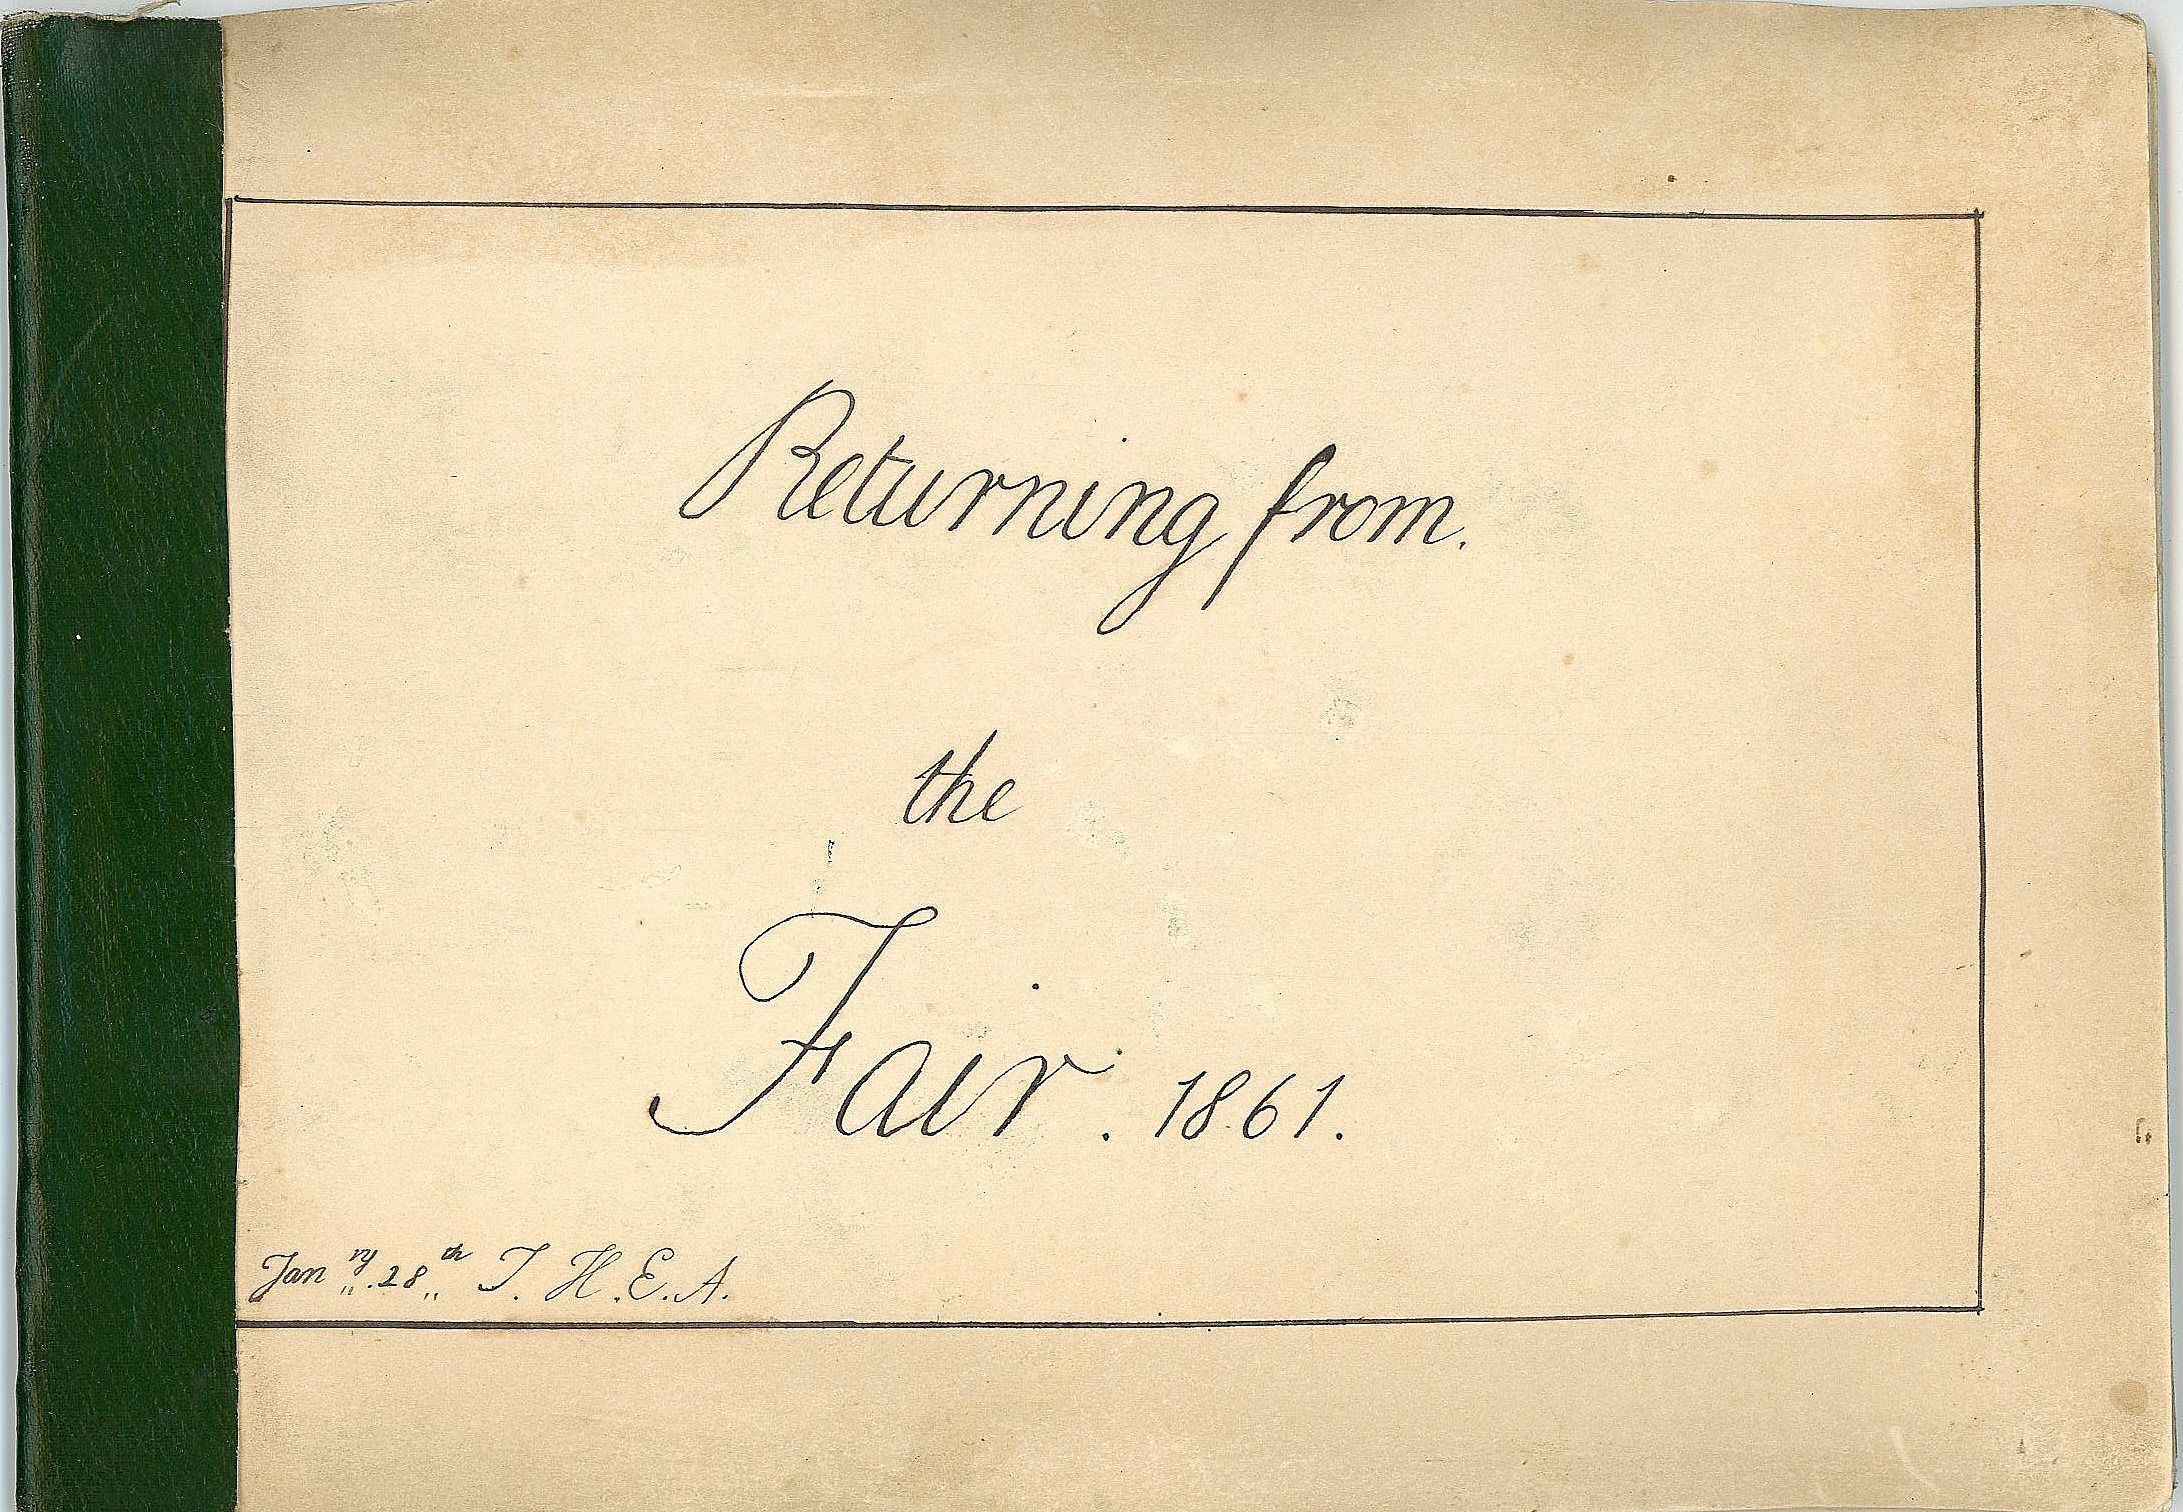 Returning from.
the
Fair. 1861.
Jan ry 28 th T. H. E. A.